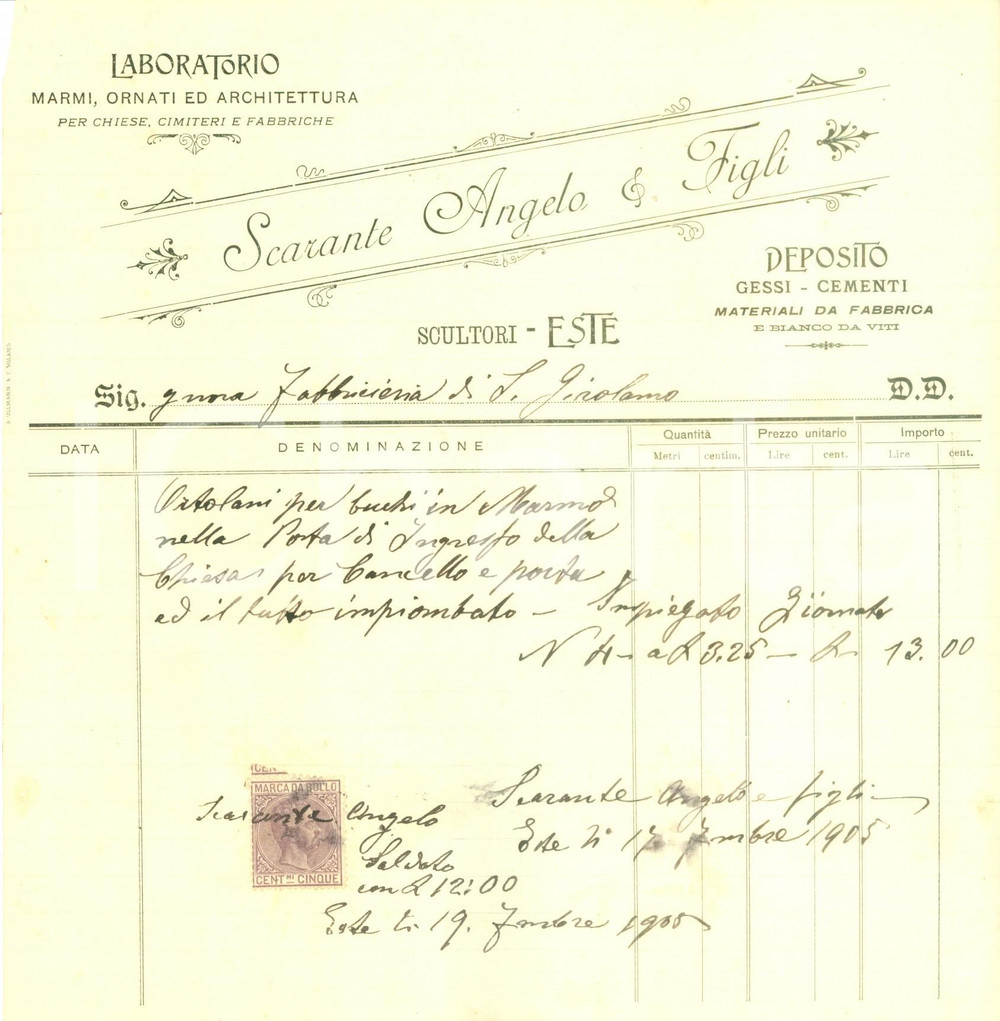 LABORATORIO
MARMI, ORNATI ED ARCHITETTURA
PER CHIESE, CIMITERI E FABBRICHE
Scarante Angelo & Figli
DEPOSITO
GESSI - CEMENTI
MATERIALI DA FABBRICA
E BIANCO DA VITI
SCULTORI - ESTE
Sig. gnora Fabbricieria di S. Girolamo D.D.
DATA DENOMINAZIONE Quantità Prezzo unitario Importo
Metri centim. Lire cent. Lire cent.
per buchi in Marmo
nella Porta di Ingresso della
Chiesa per Cancello e porta
ed il tutto impiombato - Impiegato Giornate
N 4 - a £ 3.25 - £ 13.00
MARCA DA BOLLO
CENT.MI CINQUE
Scarante Angelo e figli
Este li 17 7mbre 1905
Scarante Angelo
Saldato
con £ 12:00
Este li 19. 7mbre 1905